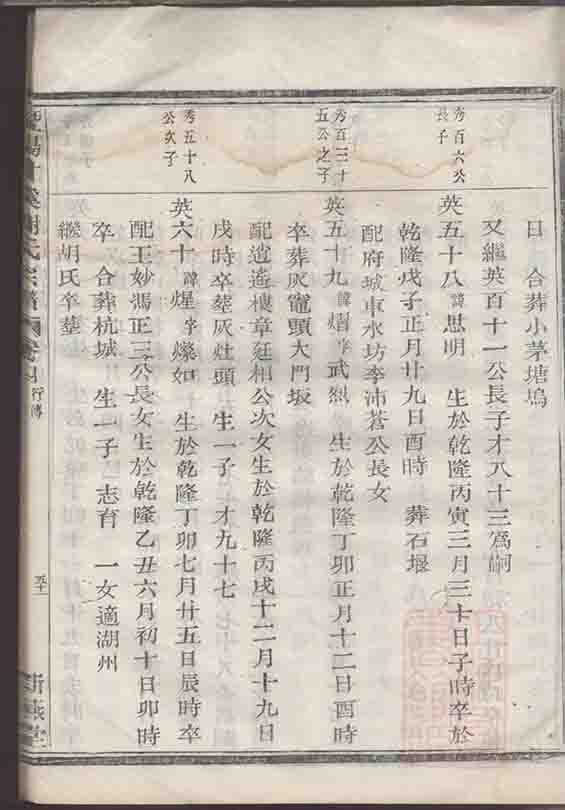 日　合葬小茅塘塢
又繼英百十一公長子才八十三為嗣
秀百六公
長子
英五十八諱思明　生於乾隆丙寅三月三十日子時卒於
乾隆戊子正月廿九日酉時　葬石堰
配府城車水坊李沛蒼公長女
秀百三十
五公之子
英五十九諱熠字武烈　生於乾隆丁卯正月十二日酉時
卒葬灰竈頭大門坂
配逍遙樓章廷相公次女生於乾隆丙戌十二月十九日
戌時卒葬灰灶頭　生一子　才九十七
秀五十八
公次子
英六十諱煋字燦如　生於乾隆丁卯七月廿五日辰時卒
配王妙馮正三公長女生於乾隆乙丑六月初十日卯時
卒　合葬杭城　生一子　志育　一女適湖州
繼胡氏卒葬
氏宗譜
行傳